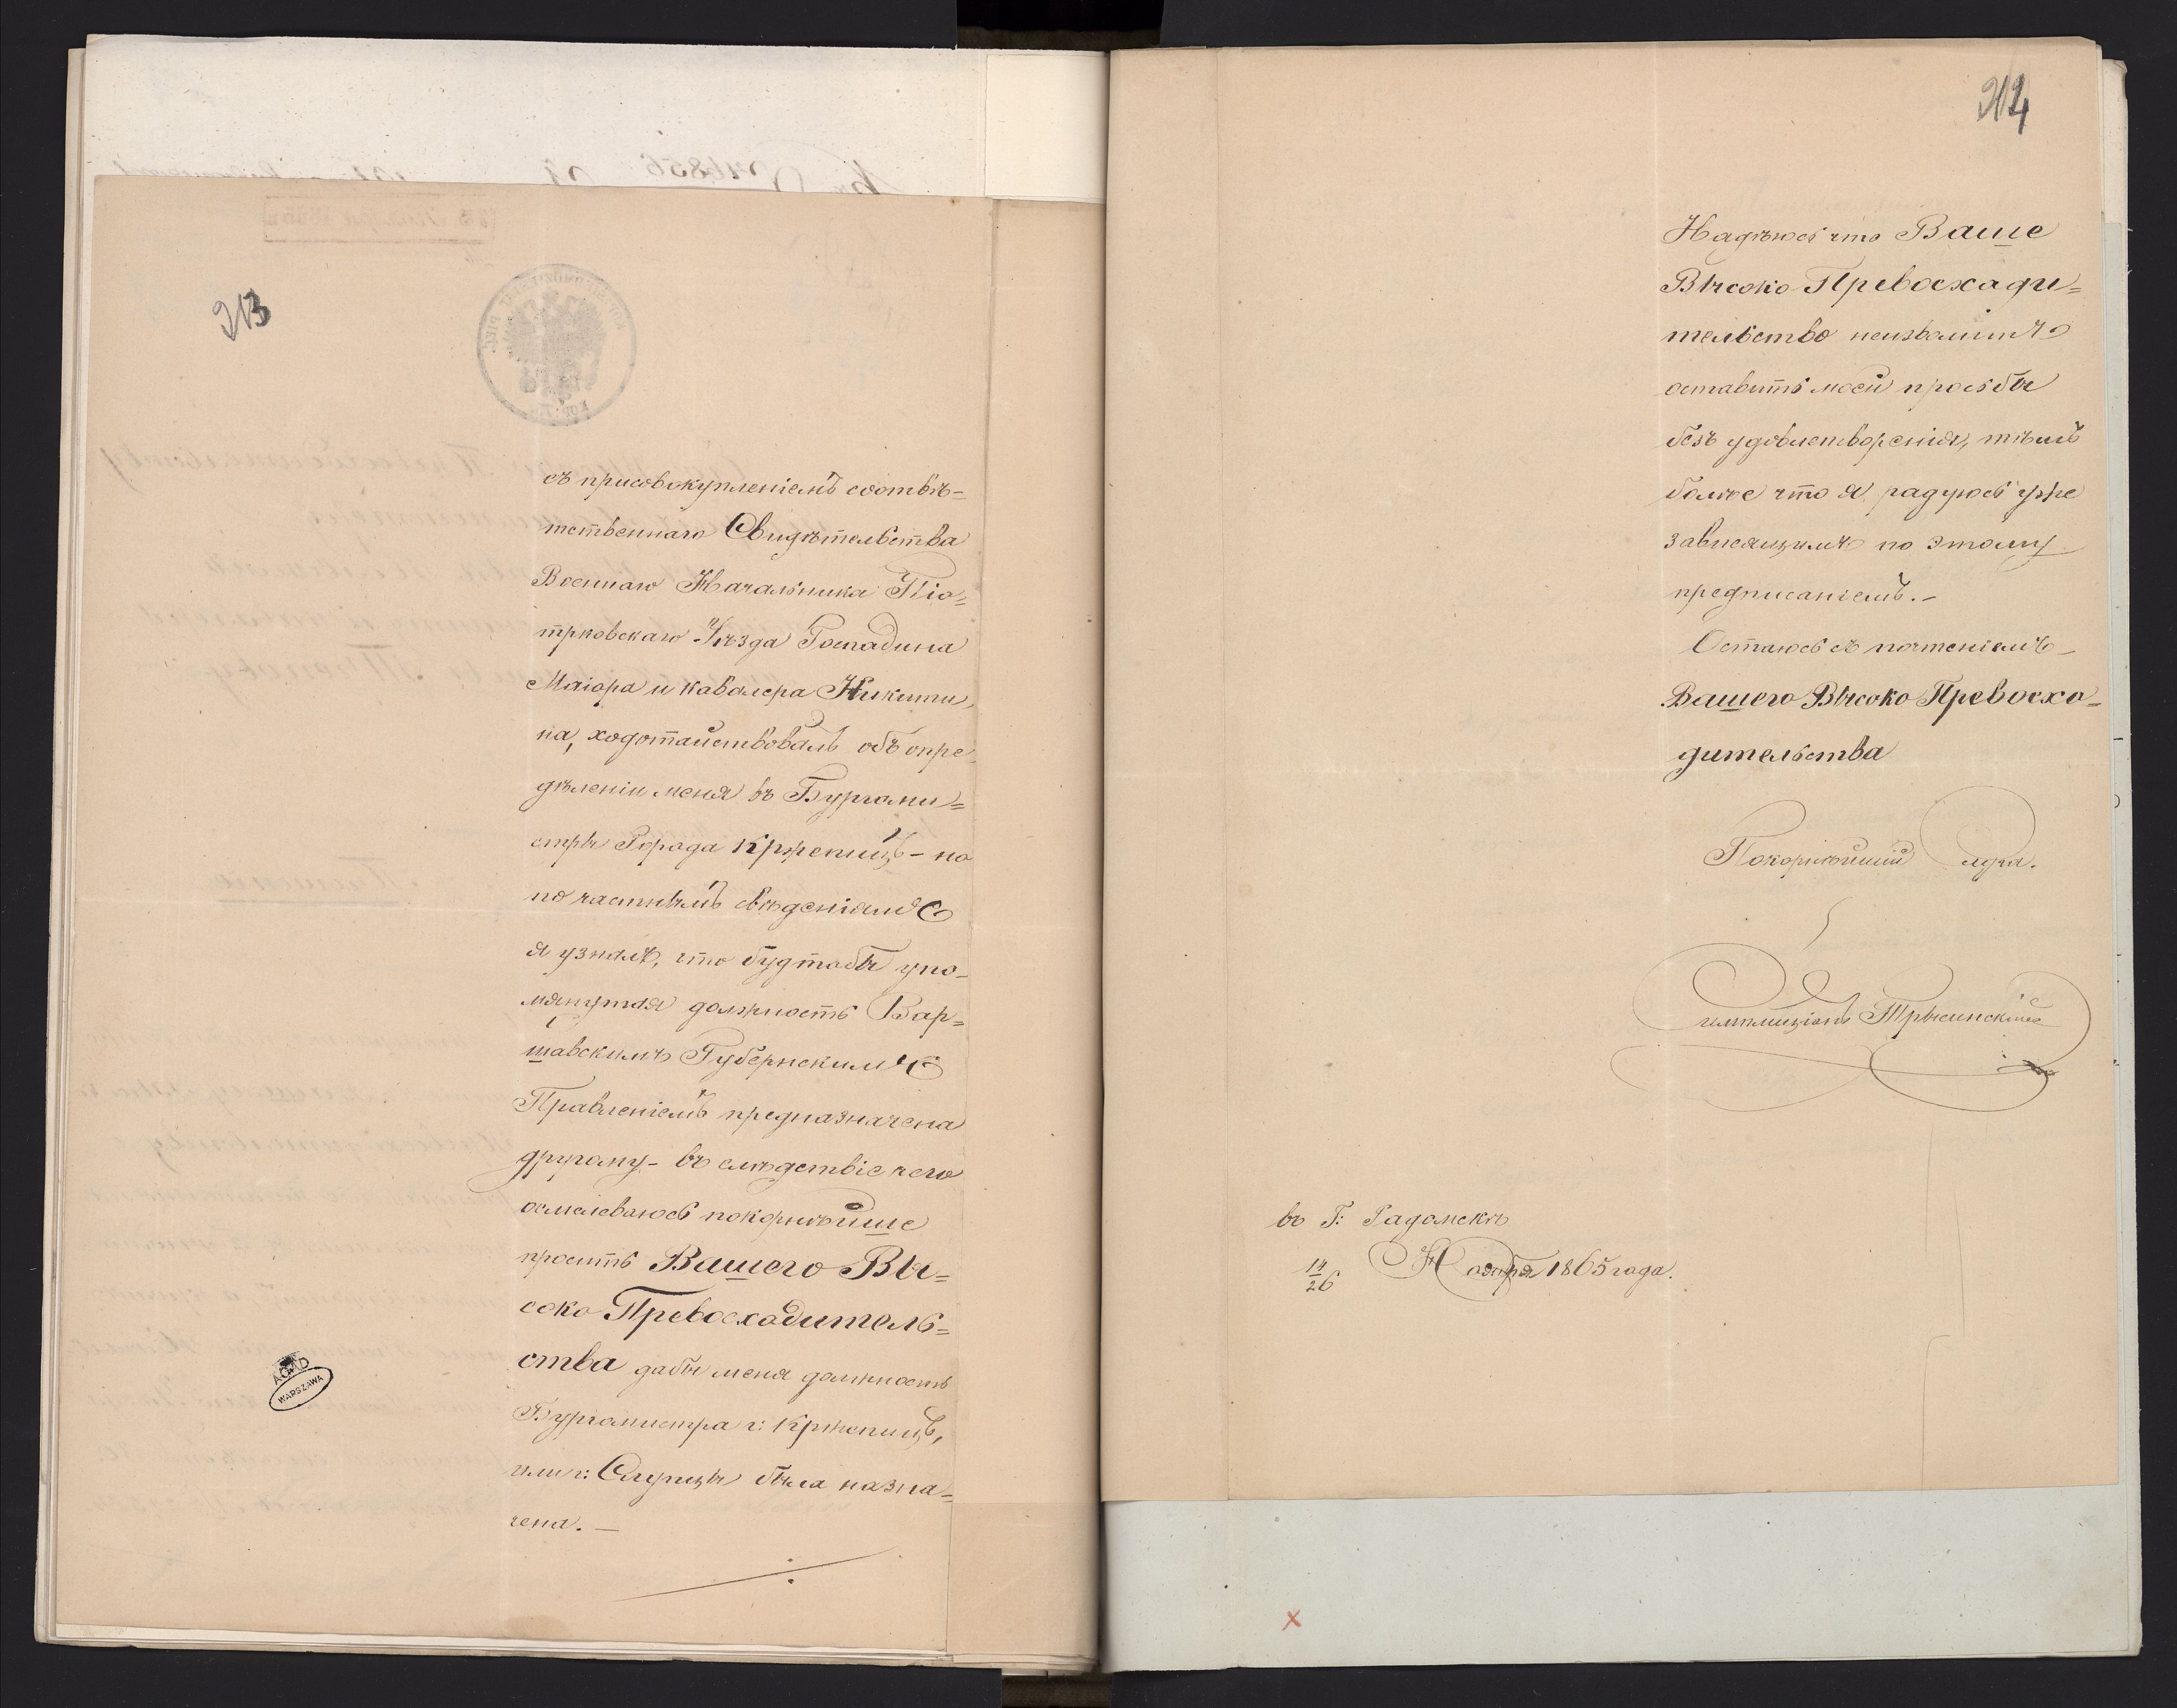 213
съ присовокупленіемъ соотвѣ-
тственнаго Свидѣтельства
Военнаго Начальника Піо=
трковскаго Уѣзда Господина
Маіора и кавалера Никити,
на, ходотайствовалъ объ опре,
дѣленіи меня въ Бургоми=
стры Города Кржепицъ - но
по частнымъ свѣденіямъ
я узналъ, что будтобы упо-
мянутая должность Вар=
шавскимъ Губернскимъ
Правленіемъ предназначена
другому - въ слѣдствіе чего
осмелеваюсь покорнѣйше
просить Вашего Вы=
соко Превосходитель=
ства дабы меня должность
Бургомистра г: Кржепицъ,
или г: Слупцы была назна=
чена. —
AGAD
WARSZAWA
214
Надѣюсь что Ваше
Высоко Превосходи=
тельство неизволитъ
оставить моей прозьбы
безъ удовлетворенія, тѣмъ
болѣе что я радуюсь уже
зависящимъ по этому
предписаніемъ. -
Остаюсь съ почтеніемъ
Вашего Высоко Превосхо=
дительства
Покорнѣйшій слуга.
Симплиціанъ Трысинскій
въ Г: Радомскѣ
14/26 Ноября 1865 года.